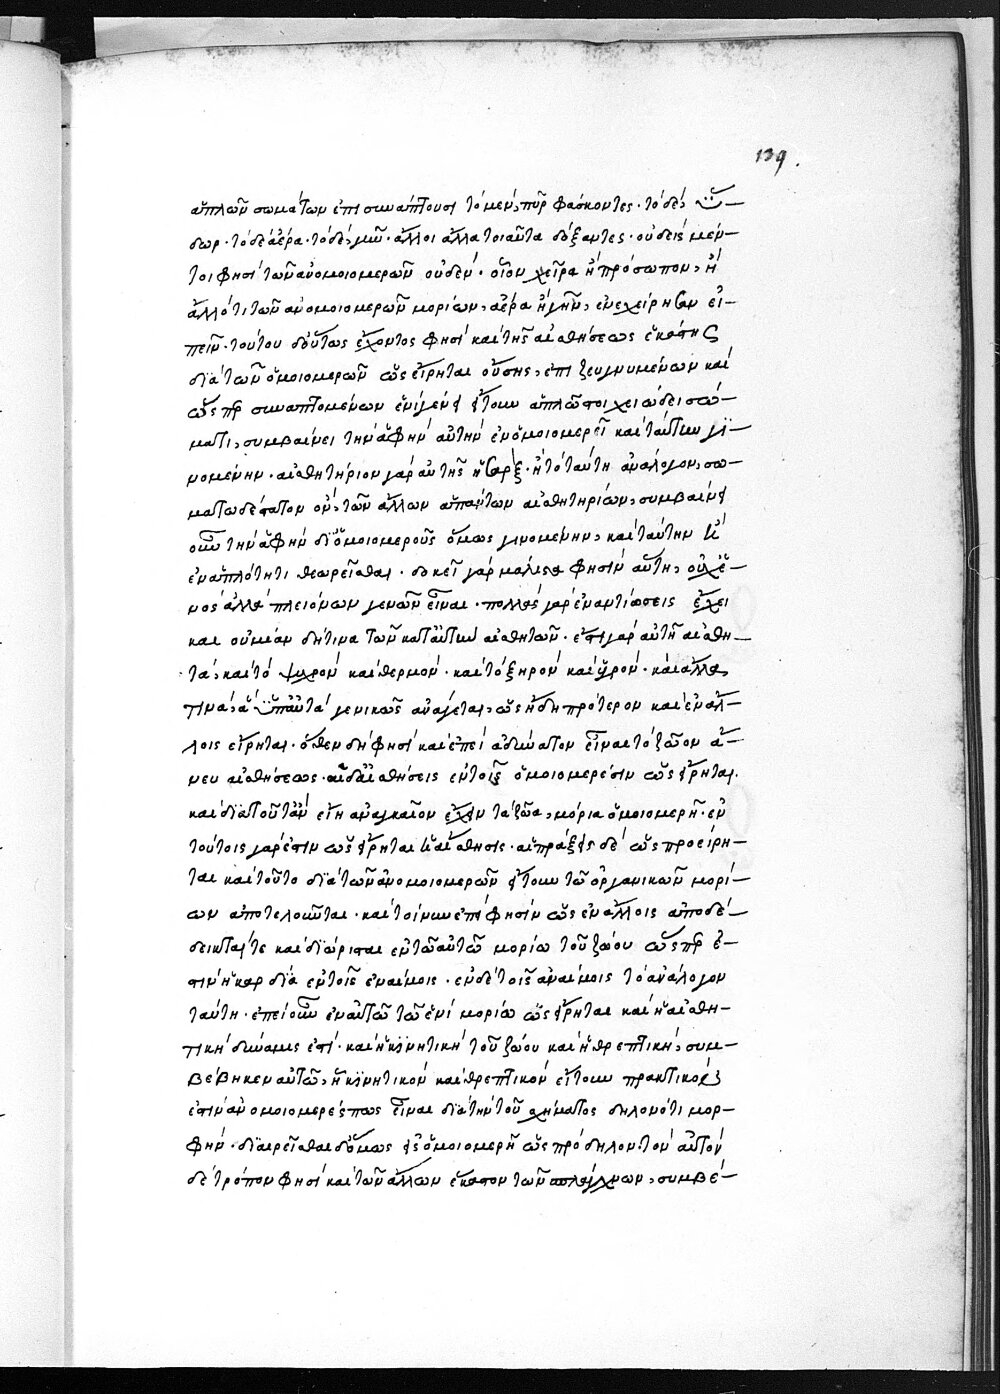 139.
ἁπλῶν σωμάτων ἐπισυνάπτουσι τὸ μὲν, πῦρ φάσκοντες· τὸ δὲ, ὕ-
δωρ· τὸ δὲ ἀέρα· τὸ δὲ, γῆν· ἄλλοι ἄλλα τοιαῦτα δόξαντες· οὐδεὶς μέν-
τοι φησὶ τῶν ἀνομοιομερῶν οὐδὲν· οἷον χεῖρα ἢ πρόσωπον, ἢ
ἄλλό τι τῶν ἀνομοιομερῶν μορίων, ἀέρα ἢ γῆν, ἐνεχείρησαν εἰ-
πεῖν· τούτου δ' οὕτως ἔχοντος φησὶ καὶ τῆς αἰσθήσεως ἑκάστης
διὰ τῶν ὁμοιομερῶν ὡς εἴρηται οὔσης, ἐπιζευγνυμένων καὶ
ὥσπερ συναπτομένων ἑνὶ γένει ἤτουν ἁπλῷ στοιχειώδει σώ-
ματι, συμβαίνει τὴν ἁφὴν αὐτὴν ἐν ὁμοιομερεῖ καὶ ταύτην γι-
νομένην· αἰσθητήριον γὰρ αὐτῆς ἡ σὰρξ· ἢ τὸ ταύτη ἀνάλογον, σω-
ματωδέστατον ὂν, τῶν ἄλλων ἁπάντων αἰσθητηρίων, συμβαίνει
οὖν τὴν ἁφὴν δι' ὁμοιομεροῦς ὅμως γινομένην, καὶ ταύτην
ἐν ἁπλότητι θεωρεῖσθαι· δοκεῖ γὰρ μάλιστα φησὶν αὕτη, οὐχ ἑ-
νὸς ἀλλὰ πλειόνων γενῶν εἶναι· πολλὰς γὰρ ἐναντιώσεις ἔχει
καὶ οὐ μίαν δή τινα τῶν κατ' αὐτὴν αἰσθητῶν· ἔστι γὰρ αὐτῇ αἰσθη-
τὰ, καὶ τὸ ψυχρὸν καὶ θερμὸν· καὶ τὸ ξηρὸν καὶ ὑγρὸν· καὶ ἄλλα
τινὰ, ἃ ὑπ' αὐτὰ γενικῶς ἀνάγεται, ὡς ἤδη πρότερον καὶ ἐν ἄλ-
λοις εἴρηται· ὅθεν δὴ φησὶ καὶ ἐπεὶ ἀδύνατον εἶναι τὸ ζῷον ἄ-
νευ αἰσθήσεως· αἱ δ' αἰσθήσεις ἐν τοῖς ὁμοιομερέσιν ὡς εἴρηται.
καὶ διὰ τοῦτ' ἂν εἴη ἀναγκαῖον ἔχειν τὰ ζῷα, μόρια ὁμοιομερῆ· ἐν
τούτοις γάρ ἐστιν ὡς εἴρηται ἡ αἴσθησις· αἱ πράξεις δὲ ὡς προείρη-
ται καὶ τοῦτο διὰ τῶν ἀνομοιομερῶν ἤτουν τῶν ὀργανικῶν μορί-
ων ἀποτελοῦνται· καὶ τοίνυν ἐπεὶ φησὶν ὡς ἐν ἄλλοις ἀποδέ-
δεικταί τε καὶ διώρισται ἐν τῷ αὐτῷ μορίῳ τοῦ ζῴου ὥσπερ ἐ-
στὶν ἡ καρδία ἐν τοῖς ἐναίμοις· ἐν δὲ τοῖς ἀναίμοις τὸ ἀνάλογον
ταύτη· ἐπεὶ οὖν ἐν αὐτῷ τῷ ἑνὶ μορίῳ ὡς εἴρηται καὶ ἡ αἰσθη-
τικὴ δύναμις ἐστὶ· καὶ ἡ κινητικὴ τοῦ ζῴου καὶ ἡ θρεπτικὴ, συμ-
βέβηκεν αὐτῷ, ᾗ κινητικὸν καὶ θρεπτικὸν εἴτουν πρακτικόν
ἐστιν ἀνομοιομερές πως εἶναι διὰ τὴν τοῦ σχήματος δηλονότι μορ-
φὴν· διαιρεῖσθαι δ' ὅμως εἰς ὁμοιομερῆ ὡς πρόδηλον. τὸν αὐτὸν
δὲ τρόπον φησὶ καὶ τῶν ἄλλων ἕκαστον τῶν σπλάγχνων, συμβέ-